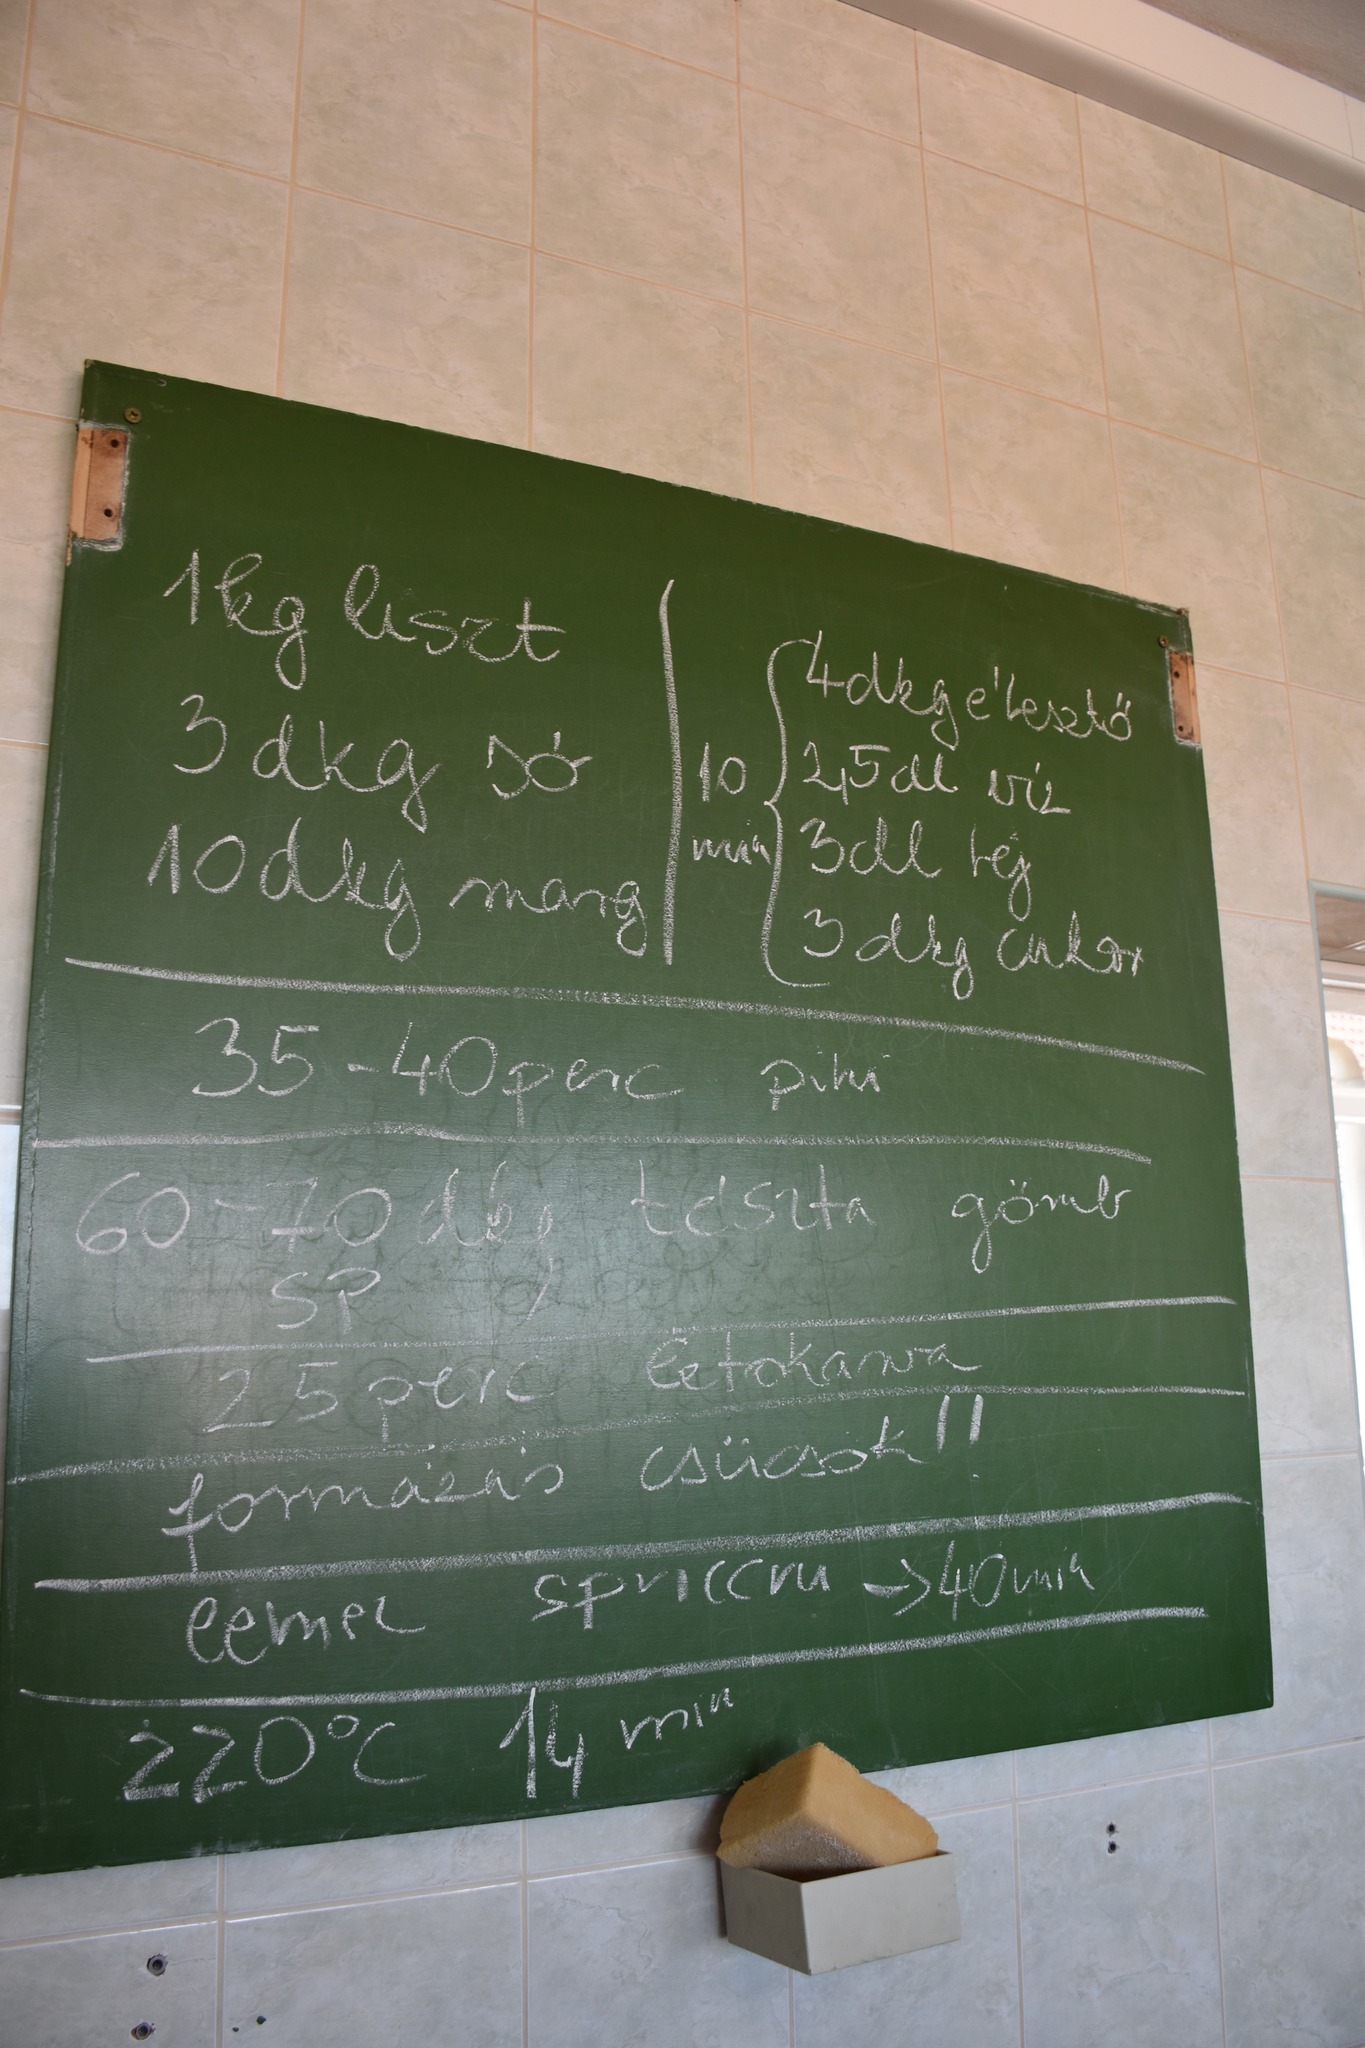 1kg liszt
3dkg só
10dkg marg
10
min
4dkg élesztő
2,5dl víz
3dl tej
3dkg cukor
35-40perc pihi
60-70dkg tészta gömb
SP
25perc letakarva
formázás csücsök!!
lemez spriccni → 40min
220°C 14 min